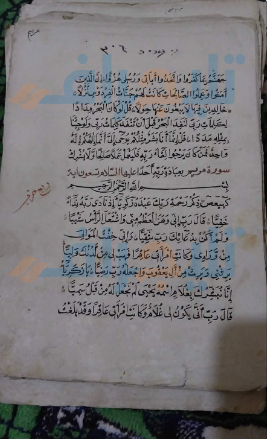 ٣٠٦
جهنم بما كفروا واتخذوا اياتى ورسلى هزوا ان الذين
آمنوا وعملوا الصالحات كانت لهم جنات الفردوس نزلا
خالدين فيها لا يبغون عنها حولا قل لو كان البحر مدادا
لكلمات ربى لنفد البحر قبل ان تنفد كلمات ربى ولو جئنا
بمثله مددا قل انما انا بشر مثلكم يوحى الى انما الهكم اله
واحد فمن كان يرجوا لقاء ربه فليعمل عملا صالحا ولا يشرك
سورة مريم بعبادة ربه احدا عليها السلام تسعون اية
بسم الله الرحمن الرحيم
كهيعص ذكر رحمة ربك عبده زكريا اذ نادى ربه نداء
خفيا قال رب انى وهن العظم منى واشتعل الرأس شيبا
ولم اكن بدعائك رب شقيا وانى خفت الموالى
من ورائى وكانت امرأتى عاقرا فهب لى من لدنك وليا
يرثنى ويرث من آل يعقوب واجعله رب رضيا يا زكريا
انا نبشرك بغلام اسمه يحيى لم نجعل له من قبل سميا
قال رب انى يكون لى غلام وكانت امرأتى عاقرا وقد بلغت